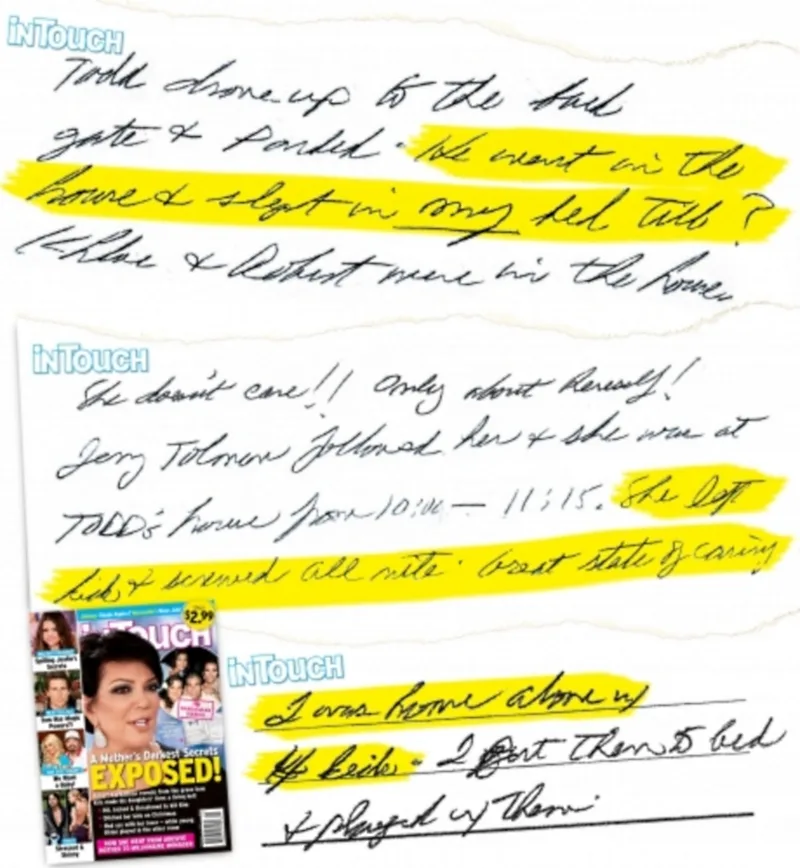 iNTOUCH
Todd drove up to the back
gate & Parked. He went in the
house & slept in my bed Till ?
Khloe & Robert were in the house
iNTOUCH
She doesn't care!! Only about herself!
Jerry Tolman followed her & she was at
TODD's house from 10:00 — 11:15. She left
kids & screwed all nite. Great state of caring!
$2.99
iNTOUCH
A Mother's Darkest Secrets
EXPOSED!
iNTOUCH
I was home alone w/
4 kids. I put them to bed
& played w/ them.